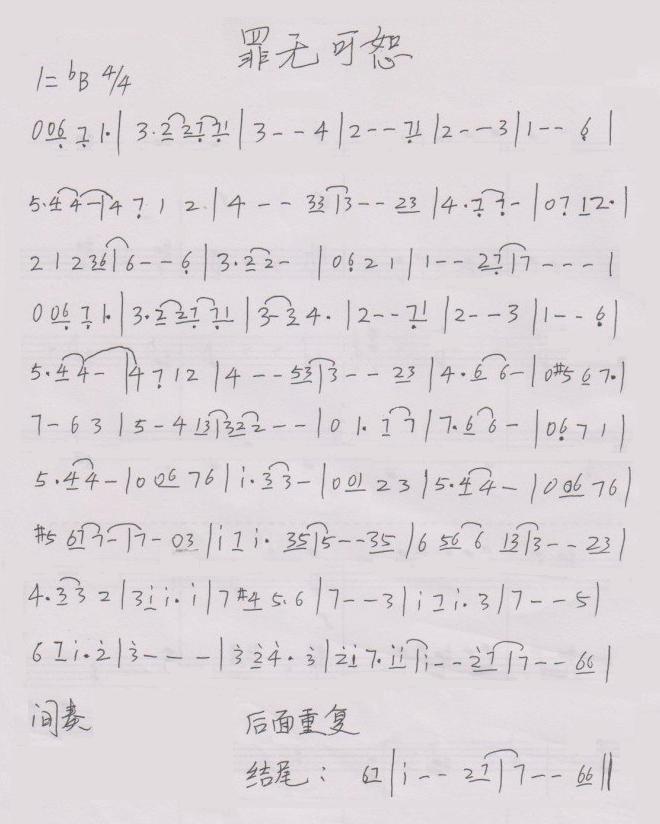 罪无可恕
1= bB 4/4
0 06 7 1· | 3·2 27 71 | 3 - - 4 | 2 - - 71 | 2 - - 3 | 1 - - 6 |
5·4 4 - | 4 7 1 2 | 4 - - 33 | 3 - - 23 | 4·7 7 - | 0 7 12· |
2 1 2 36 | 6 - - 6 | 3·2 2 - | 0 6 2 1 | 1 - - 27 | 7 - - - |
0 06 7 1· | 3·2 27 71 | 3 - 3 4· | 2 - - 71 | 2 - - 3 | 1 - - 6 |
5·4 4 - | 4 7 1 2 | 4 - - 53 | 3 - - 23 | 4·6 6 - | 0 #5 6 7· |
7 - 6 3 | 5 - 4 13 | 32 2 - - | 0 1· 7 7 | 7·6 6 - | 0 6 7 1 |
5·4 4 - | 0 06 76 | i·3 3 - | 0 01 2 3 | 5·4 4 - | 0 06 76 |
#5 67 7 - | 7 - 03 | i 7 i· 35 | 5 - - 35 | 6 56 6 13 | 3 - - 23 |
4·3 3 2 | 3 i i· i | 7 #4 5·6 | 7 - - 3 | i 7 i· 3 | 7 - - 5 |
6 7 i· 2 | 3 - - - | 3 2 4· 3 | 2i 7· ii | i - - 27 | 7 - - 66 |
间奏 后面重复
结尾: 67 | i - - 27 | 7 - - 66 ||